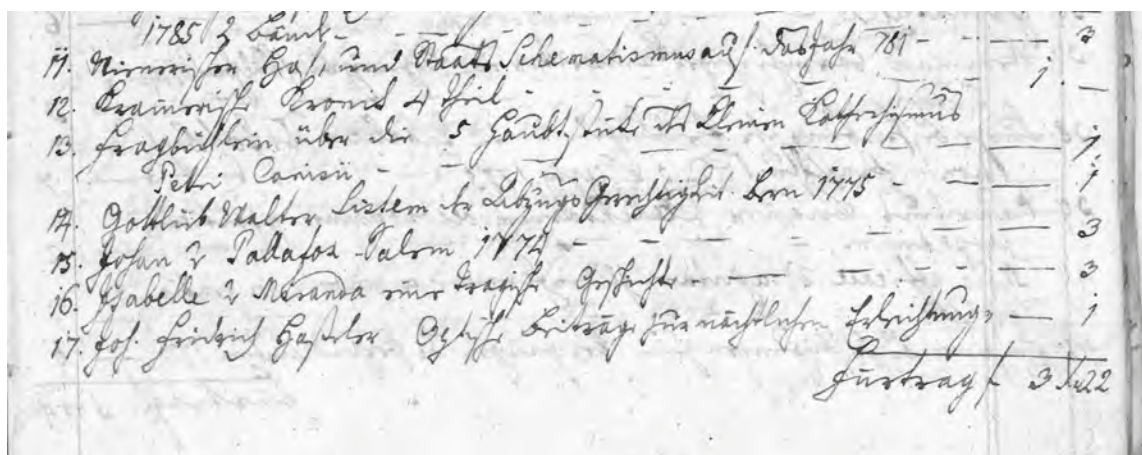 1785 2 Bände - - - - 3
11. Wienerischer Hof, und Staats Schematismus auf das Jahr 781 - - - 3
12. Kramerische Kronik 4 Theil - - - - 1. -
13. Fragbüchlein über die 5 Haubtstüke des Kleinen Cathechismus
Petri Canisii - - - - - 1
14. Gottlieb Walter System der Abzugs Gerechtigkeit Bern 1775 - - - 1
15. Johan 2 Pallafox - Salem 1774 - - - - 3
16. Isabelle 2 Miranda eine Tragische Geschichte - - - 3
17. Joh. Fridrich Haseler Optische Beiträge zur nächtlichen Erleichtung - 1
Fürtrag f 3 x 22